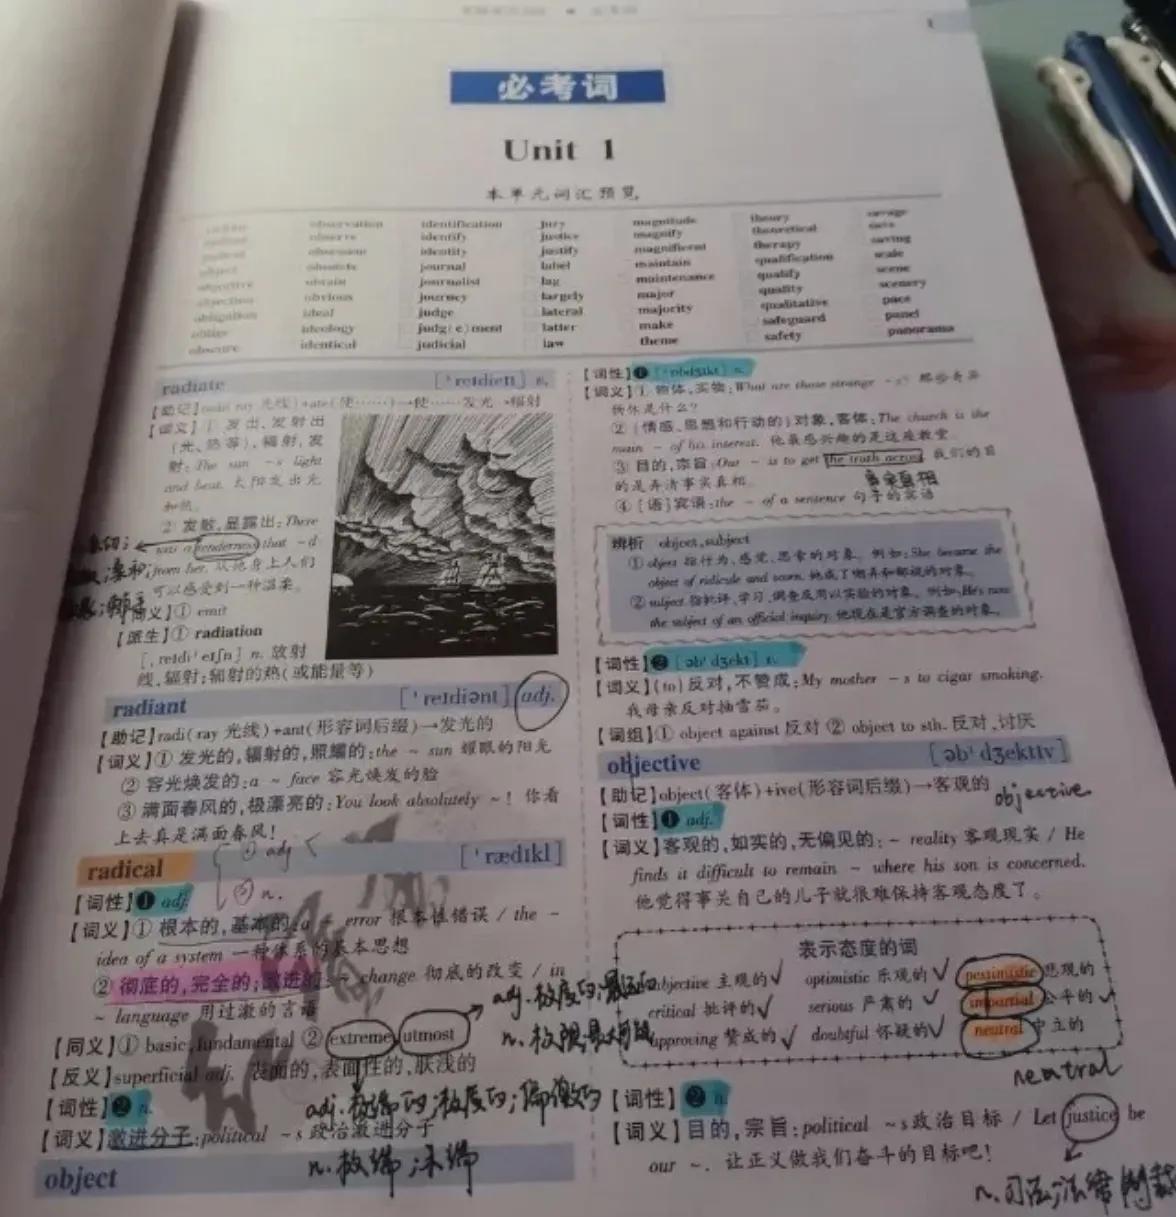 必考词
Unit 1
本单元词汇预览
observation identification jury magnitude theory savage
observe identify justice magnify theoretical
obsession identity justify magnificent therapy saving
object journal label maintain qualification scale
objective obtain journalist lag maintenance qualify scene
objection obvious journey largely major quality scenery
obligation ideal judge lateral majority qualitative pace
oblige ideology judg(e)ment latter make safeguard panel
obscure identical judicial law theme safety panorama
radiate ['reɪdieɪt] v.
【助记】radi(ray 光线)+ate(使……)→使……发光→辐射
【词义】① 发出,发射出
(光、热等),辐射,发
射:The sun ~s light
and heat. 太阳发出光
和热。
② 发散,显露出:There
was a tenderness that ~d
from her. 从她身上人们
可以感受到一种温柔。
【同义】① emit
【派生】① radiation
[ˌreɪdi'eɪʃn] n. 放射
线,辐射;辐射的热(或能量等)
radiant ['reɪdiənt] adj.
【助记】radi(ray 光线)+ant(形容词后缀)→发光的
【词义】① 发光的,辐射的,照耀的:the ~ sun 耀眼的阳光
② 容光焕发的:a ~ face 容光焕发的脸
③ 满面春风的,极漂亮的:You look absolutely ~! 你看
上去真是满面春风!
① adj
radical ['rædɪkl]
② n.
【词性】❶ adj.
【词义】① 根本的,基本的:a ~ error 根本性错误 / the ~
idea of a system 一种体系的基本思想
② 彻底的,完全的;激进的:~ change 彻底的改变 / in
~ language 用过激的言语
【同义】① basic, fundamental ② extreme, utmost
adj.极度的;最远的
n.极限;最大可能
【反义】superficial adj. 表面的,表面性的,肤浅的
【词性】❷ n.
adj.极端的;极度的;偏激的
【词义】激进分子:political ~s 政治激进分子
n.极端;末端
object
【词性】❶ ['ɒbdʒɪkt] n.
【词义】① 物体,实物:What are those strange ~s? 那些奇异
物体是什么?
② (情感、思想和行动的)对象,客体:The church is the
main ~ of his interest. 他最感兴趣的是这座教堂。
③ 目的,宗旨:Our ~ is to get the truth across. 我们的目
的是弄清事实真相。
事实真相
④ [语]宾语:the ~ of a sentence 句子的宾语
辨析 object, subject
① object 指行为、感觉、思索的对象。例如:She became the
object of ridicule and scorn. 她成了嘲弄和鄙视的对象。
② subject 指批评、学习、调查及用以实验的对象。例如:He's now
the subject of an official inquiry. 他现在是官方调查的对象。
【词性】❷ [əb'dʒekt] v.
【词义】(to)反对,不赞成:My mother ~s to cigar smoking.
我母亲反对抽雪茄。
【词组】① object against 反对 ② object to sth. 反对、讨厌
objective [əb'dʒektɪv]
【助记】object(客体)+ive(形容词后缀)→客观的
objective
【词性】❶ adj.
【词义】客观的,如实的,无偏见的:~ reality 客观现实 / He
finds it difficult to remain ~ where his son is concerned.
他觉得事关自己的儿子就很难保持客观态度了。
表示态度的词
subjective 主观的 optimistic 乐观的 pessimistic 悲观的
critical 批评的 serious 严肃的 impartial 公平的
approving 赞成的 doubtful 怀疑的 neutral 中立的
neutral
【词性】❷ n.
【词义】目的,宗旨:political ~s 政治目标 / Let justice be
our ~. 让正义做我们奋斗的目标吧!
n.司法;法律制裁